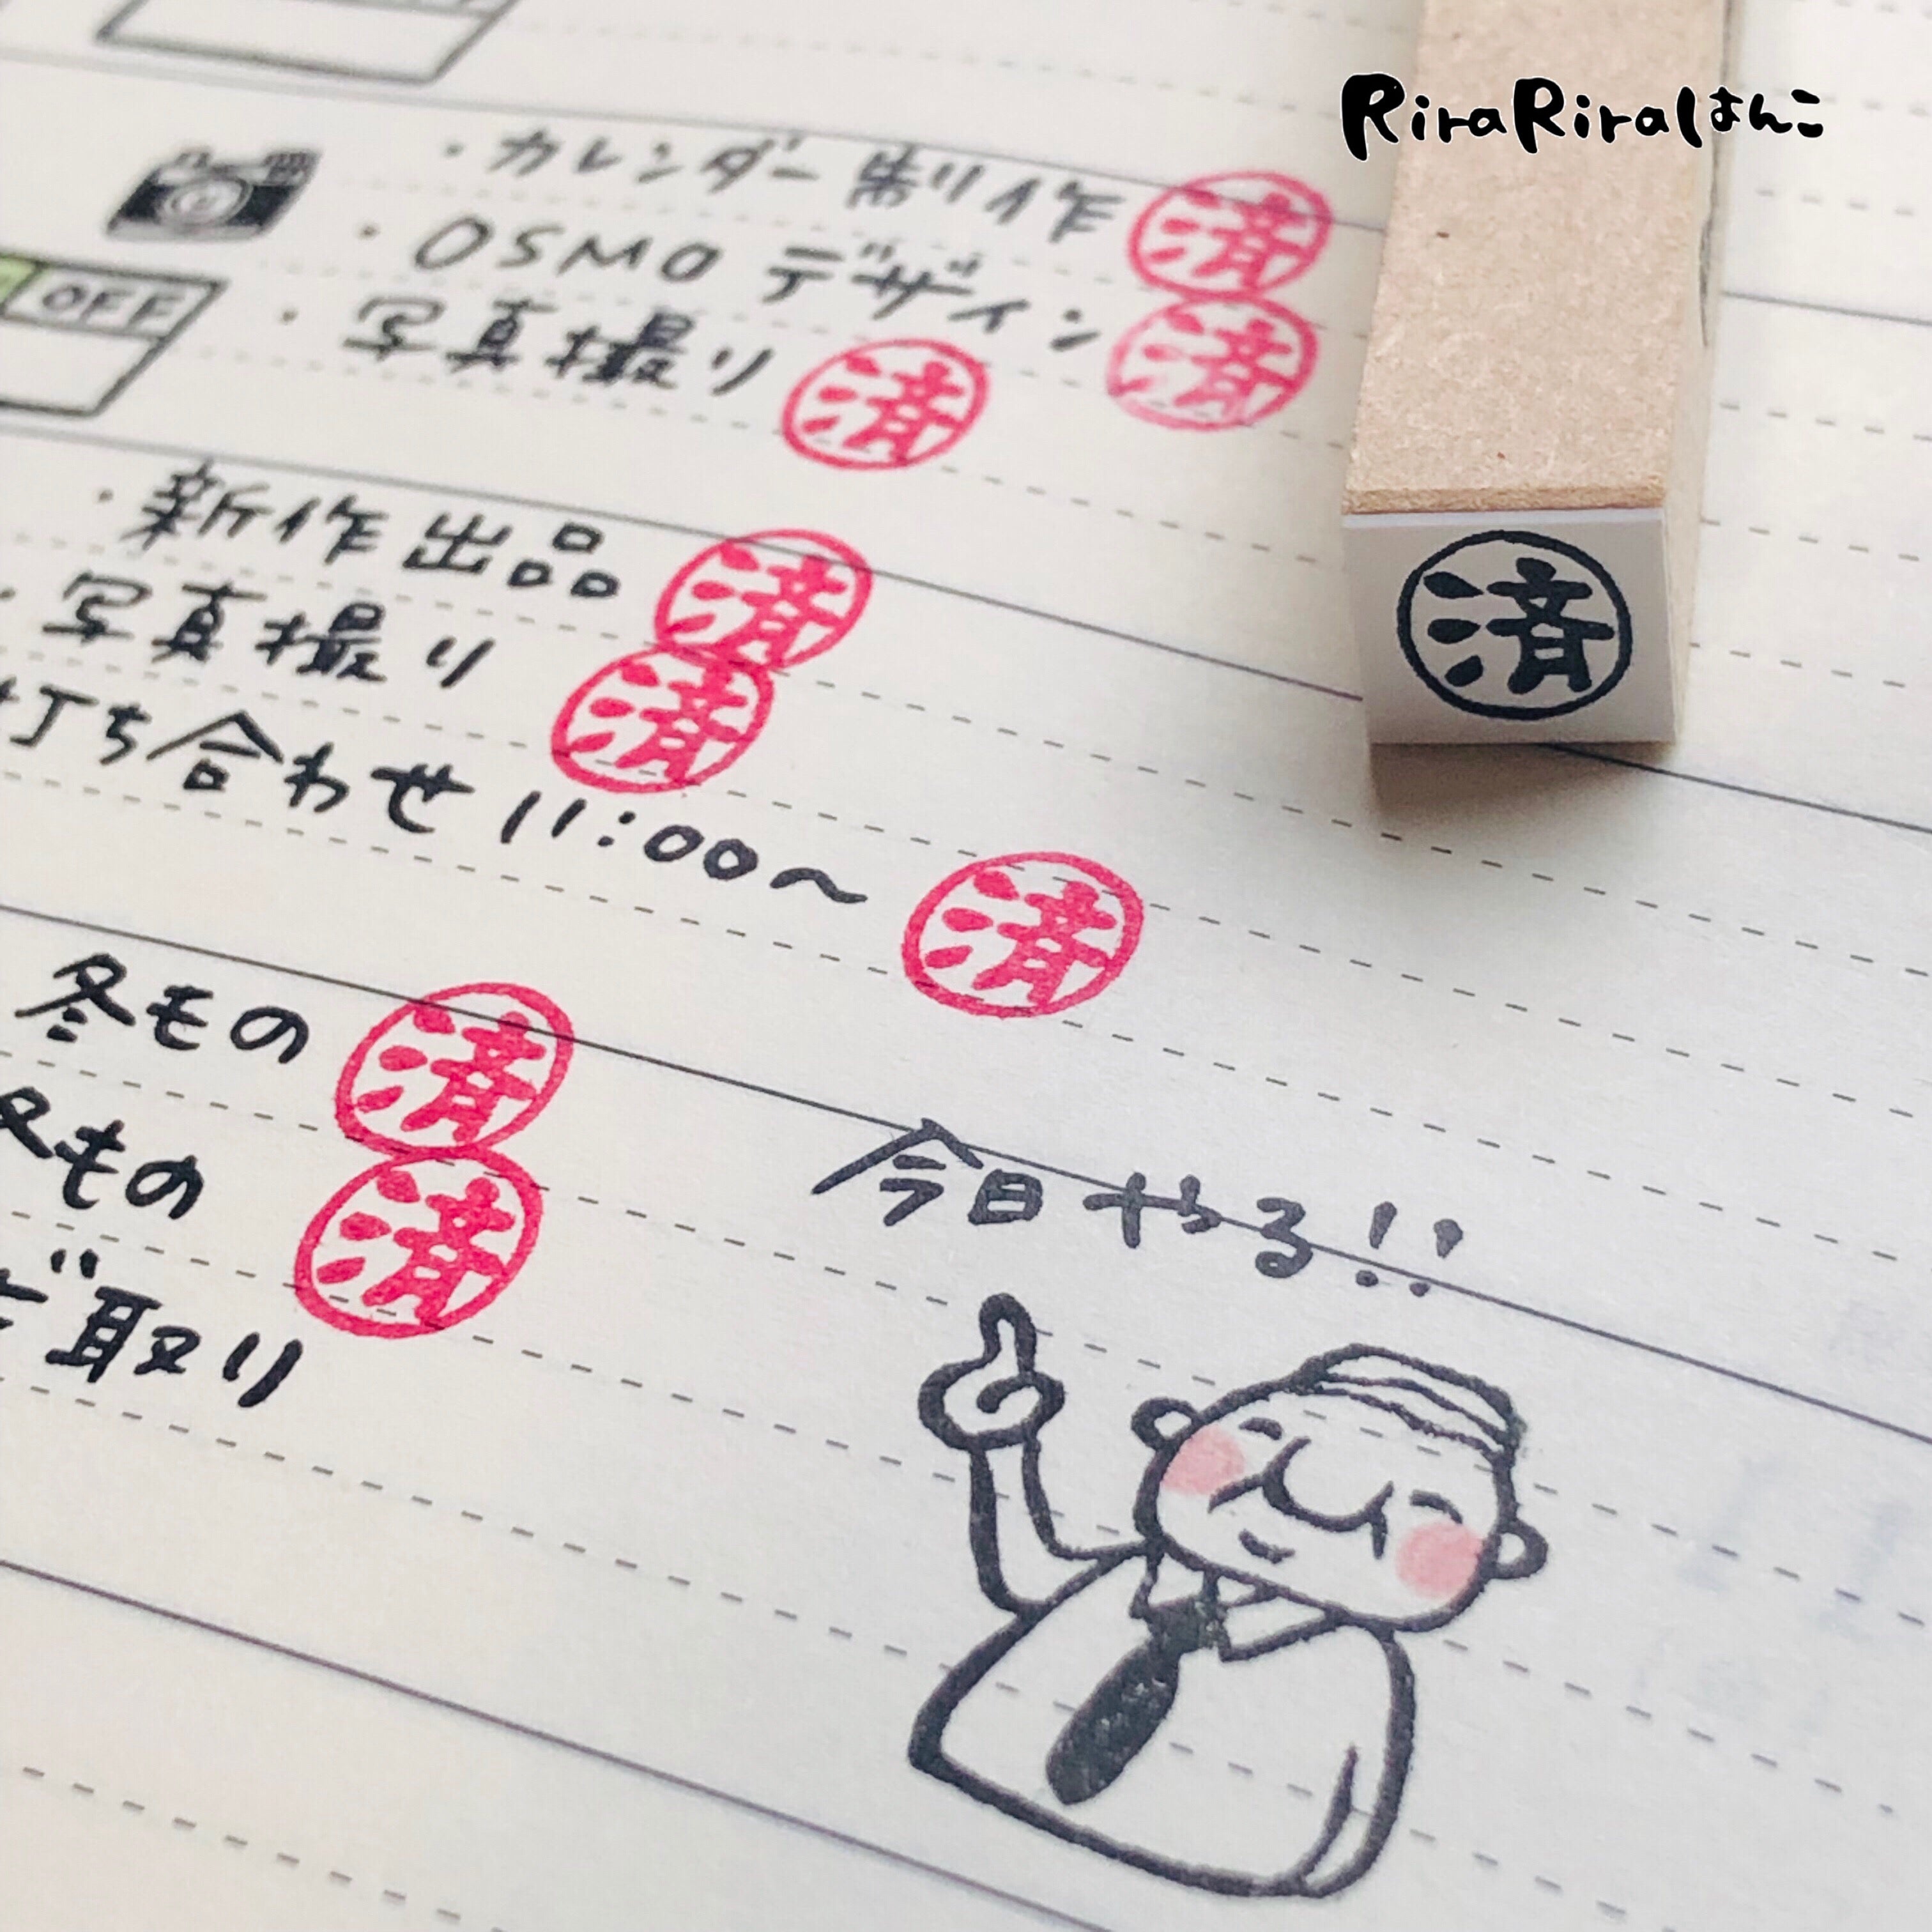 RiraRiraはんこ
・カレンダー制作 済
・OSMO デザイン 済
OFF
・写真撮り 済
・新作出品 済
・写真撮り 済
打ち合わせ 11:00〜 済
済
冬もの 済
冬もの 済
取り
今日やる!!